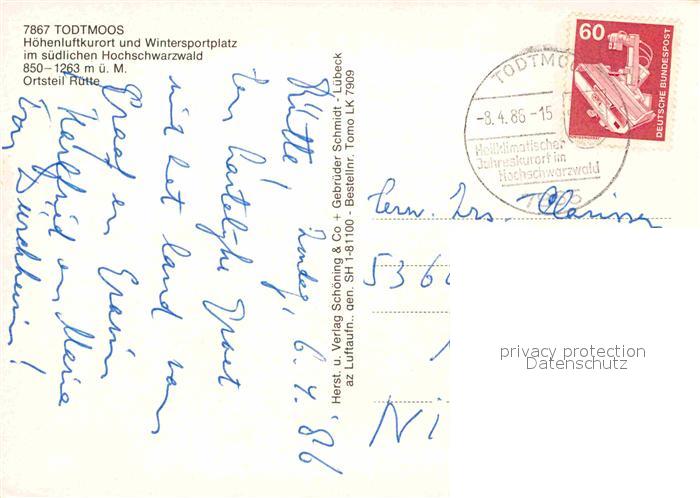 7867 TODTMOOS
Höhenluftkurort und Wintersportplatz
im südlichen Hochschwarzwald
850–1263 m ü. M.
Ortsteil Rütte
Rütte! Zondag, 6.4.'86
Een hartelijke Groet
uit het land van
Graaf en Gravin
Karlfried en Maria
von Dürckheim!
Herst. u. Verlag Schöning & Co + Gebrüder Schmidt - Lübeck
az Luftaufn., gen. SH 1-81100 - Bestellnr. Tomo LK 7909
60
DEUTSCHE BUNDESPOST
TODTMOOS
-8.4.86-15
Heilklimatischer
Jahreskurort im
Hochschwarzwald
7865
536
Ni
privacy protection
Datenschutz